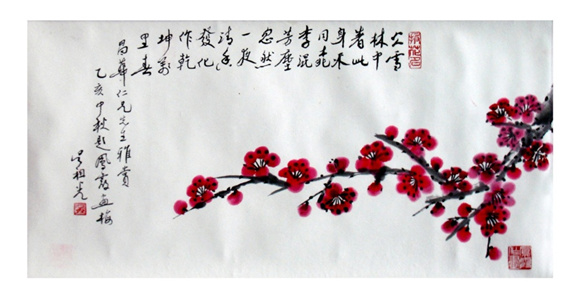 冰雪
林中
著此
身不
同桃
李混
芳塵
忽然
一夜
清香
發化
作乾
坤萬
里春
昌華仁兄先生雅賞
乙亥中秋題鳳霞画梅
吳祖光